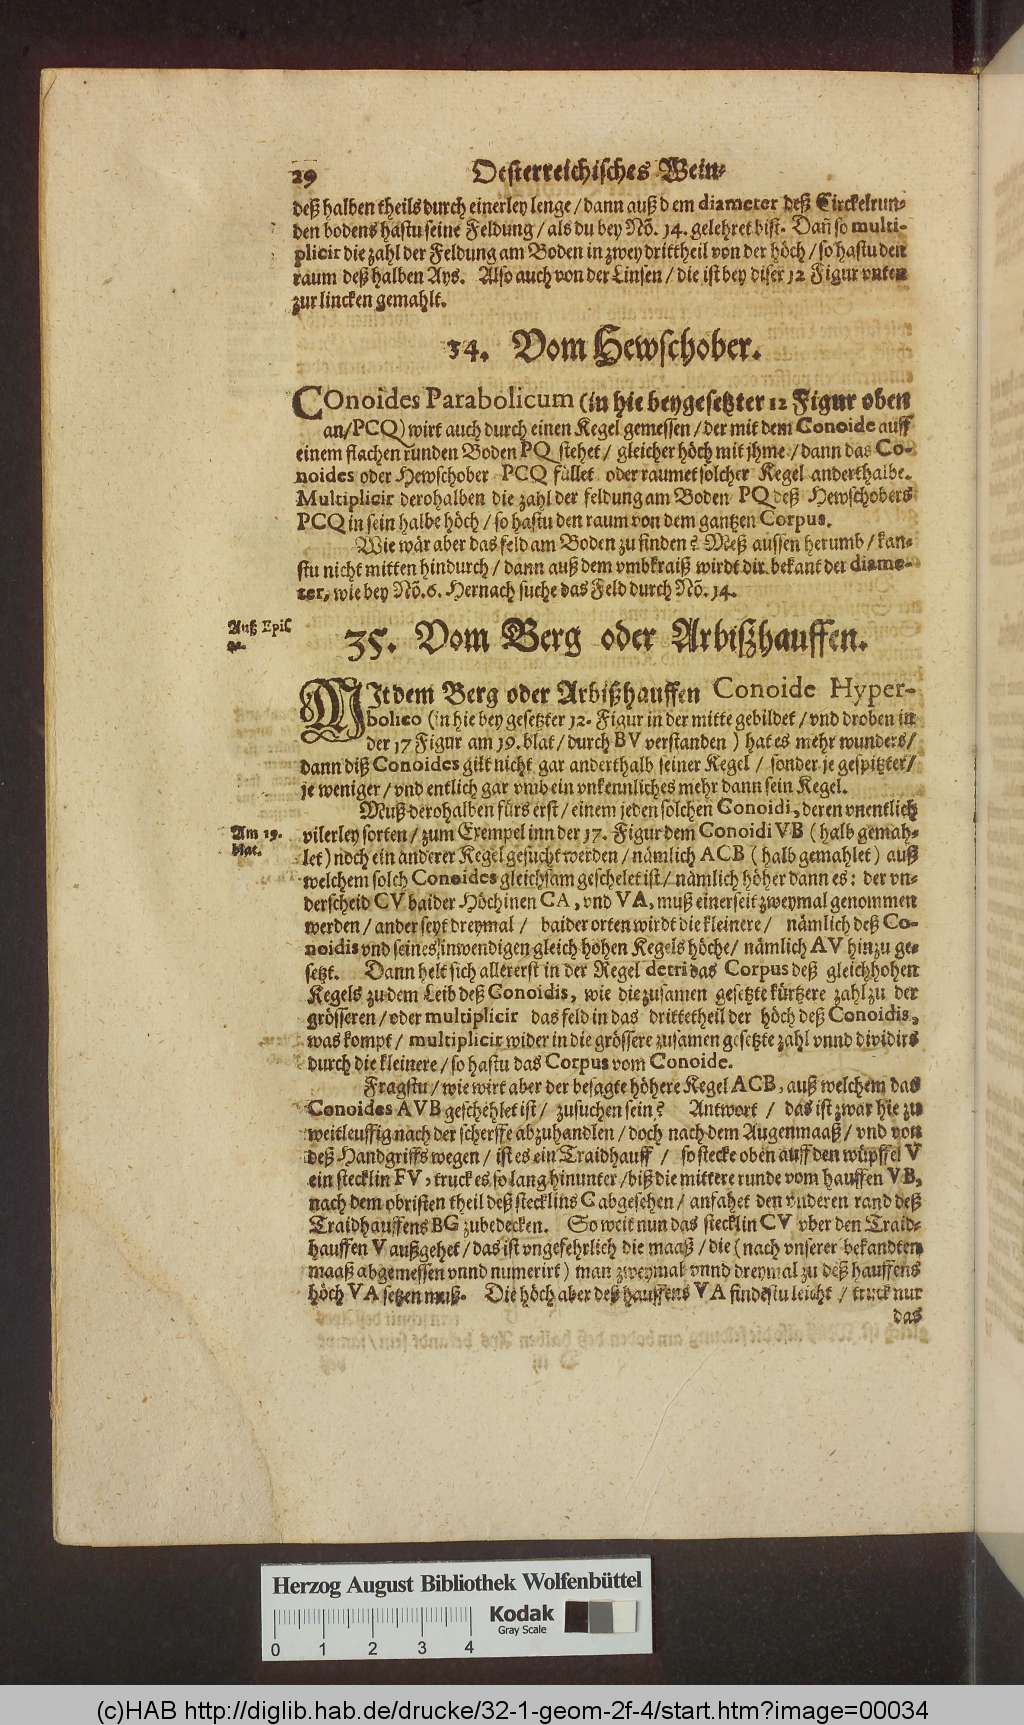 29 Oesterreichisches Wein⸗
deß halben theils durch einerley lenge / dann auß dem diameter deß Circkelrun⸗
den bodens hastu seine Feldung / als du bey Nō. 14. gelehret bist. Dañ so multi-
plicir die zahl der Feldung am Boden in zwey drittheil von der höch / so hastu den
raum deß halben Ays. Also auch von der Linsen / die ist bey diser 12 Figur vnten
zur lincken gemahlt.
34. Vom Hewschober.
COnoides Parabolicum (in hie beygesetzter 12 Figur oben
an/PCQ) wirt auch durch einen Kegel gemessen / der mit dem Conoide auff
einem flachen runden Boden PQ stehet / gleicher höch mit jhme / dann das Co-
noides oder Hewschober PCQ füllet oder raumet solcher Kegel anderthalbe.
Multiplicir derohalben die zahl der feldung am Boden PQ deß Hewschobers
PCQ in sein halbe höch / so hastu den raum von dem gantzen Corpus.
Wie wär aber das feld am Boden zu finden? Meß aussen herumb / kan⸗
stu nicht mitten hindurch / dann auß dem vmbkraiß wirdt dir bekant der diame-
ter, wie bey Nō. 6. Hernach suche das Feld durch Nō. 14.
Auß Epis.
35. Vom Berg oder Arbißhauffen.
MIt dem Berg oder Arbißhauffen Conoide Hyper-
bolico (in hie bey gesetzter 12. Figur in der mitte gebildet / vnd droben in
der 17 Figur am 19. blat / durch BV verstanden) hat es mehr wunders /
dann diß Conoides gilt nicht gar anderthalb seiner Kegel / sonder je gespitzter /
je weniger / vnd entlich gar vmb ein vnkennliches mehr dann sein Kegel.
Muß derohalben fürs erst / einem jeden solchen Conoidi, deren vnentlich
Am 19.
blat.
vilerley sorten / zum Exempel inn der 17. Figur dem Conoidi VB (halb gemah⸗
let) noch ein anderer Kegel gesucht werden / nämlich ACB (halb gemahlet) auß
welchem solch Conoides gleichsam geschelet ist / nämlich höher dann es: der vn⸗
derscheid CV baider Höchinen CA, vnd VA, muß einerseit zweymal genommen
werden / anderseyt dreymal / baider orten wirdt die kleinere / nämlich deß Co-
noidis vnd seines inwendigen gleich hohen Kegels höche / nämlich AV hinzu ge⸗
setzt. Dann helt sich allererst in der Regel detri das Corpus deß gleichhohen
Kegels zu dem Leib deß Conoidis, wie die zusamen gesetzte kürtzere zahl zu der
grösseren / oder multiplicir das feld in das drittetheil der höch deß Conoidis,
was kompt / multiplicir wider in die grössere zusamen gesetzte zahl vnnd dividirs
durch die kleinere / so hastu das Corpus vom Conoide.
Fragstu / wie wirt aber der besagte höhere Kegel ACB, auß welchem das
Conoides AVB geschehlet ist / zusuchen sein? Antwort / das ist zwar hie zu
weitleuffig nach der scherffe abzuhandlen / doch nach dem Augenmaaß / vnd von
deß Handgriffs wegen / ist es ein Traidhauff / so stecke oben auff den wüpffel V
ein stecklin FV, truck es so lang hinunter / biß die mittere runde vom hauffen VB,
nach dem obristen theil deß stecklins C abgesehen / anfahet den vnderen rand deß
Traidhauffens BG zubedecken. So weit nun das stecklin CV vber den Traid⸗
hauffen V außgehet / das ist vngefehrlich die maaß / die (nach vnserer bekandten
maaß abgemessen vnnd numerirt) man zweymal vnnd dreymal zu deß hauffens
höch VA setzen muß. Die höch aber deß hauffens VA findestu leicht / truck nur
das
Herzog August Bibliothek Wolfenbüttel
Kodak
Gray Scale
0 1 2 3 4
(c)HAB http://diglib.hab.de/drucke/32-1-geom-2f-4/start.htm?image=00034